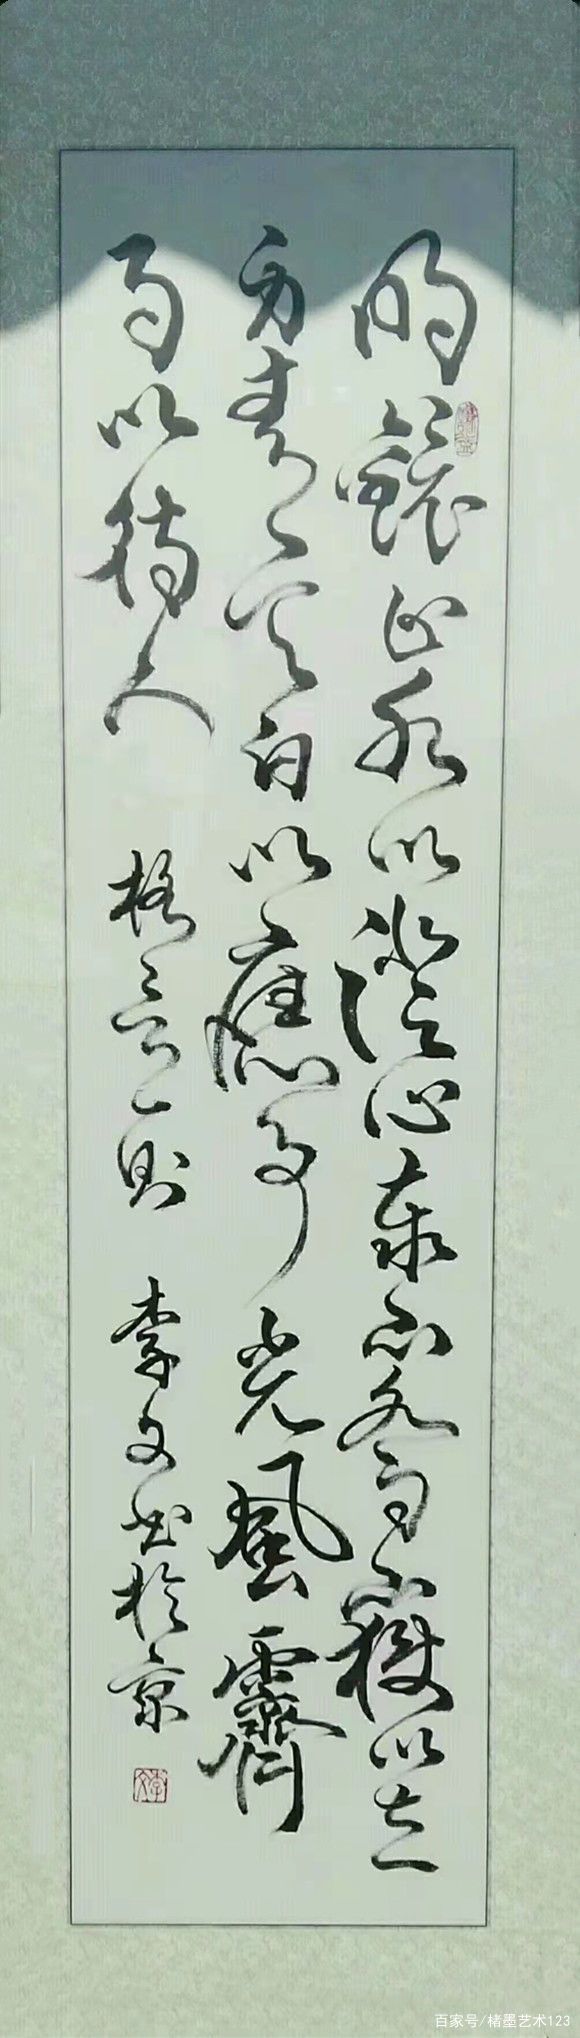 明鏡止水以澄心泰山喬嶽以立
身青天白以應事光風霽
月以待人 格言一則 李文书於京
百家号/楮墨艺术123